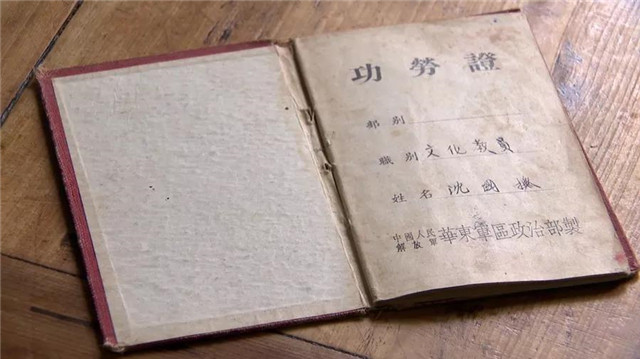 功勞證
部別
職別 文化教員
姓名 沈國
中國人民解放軍 華東軍區政治部製